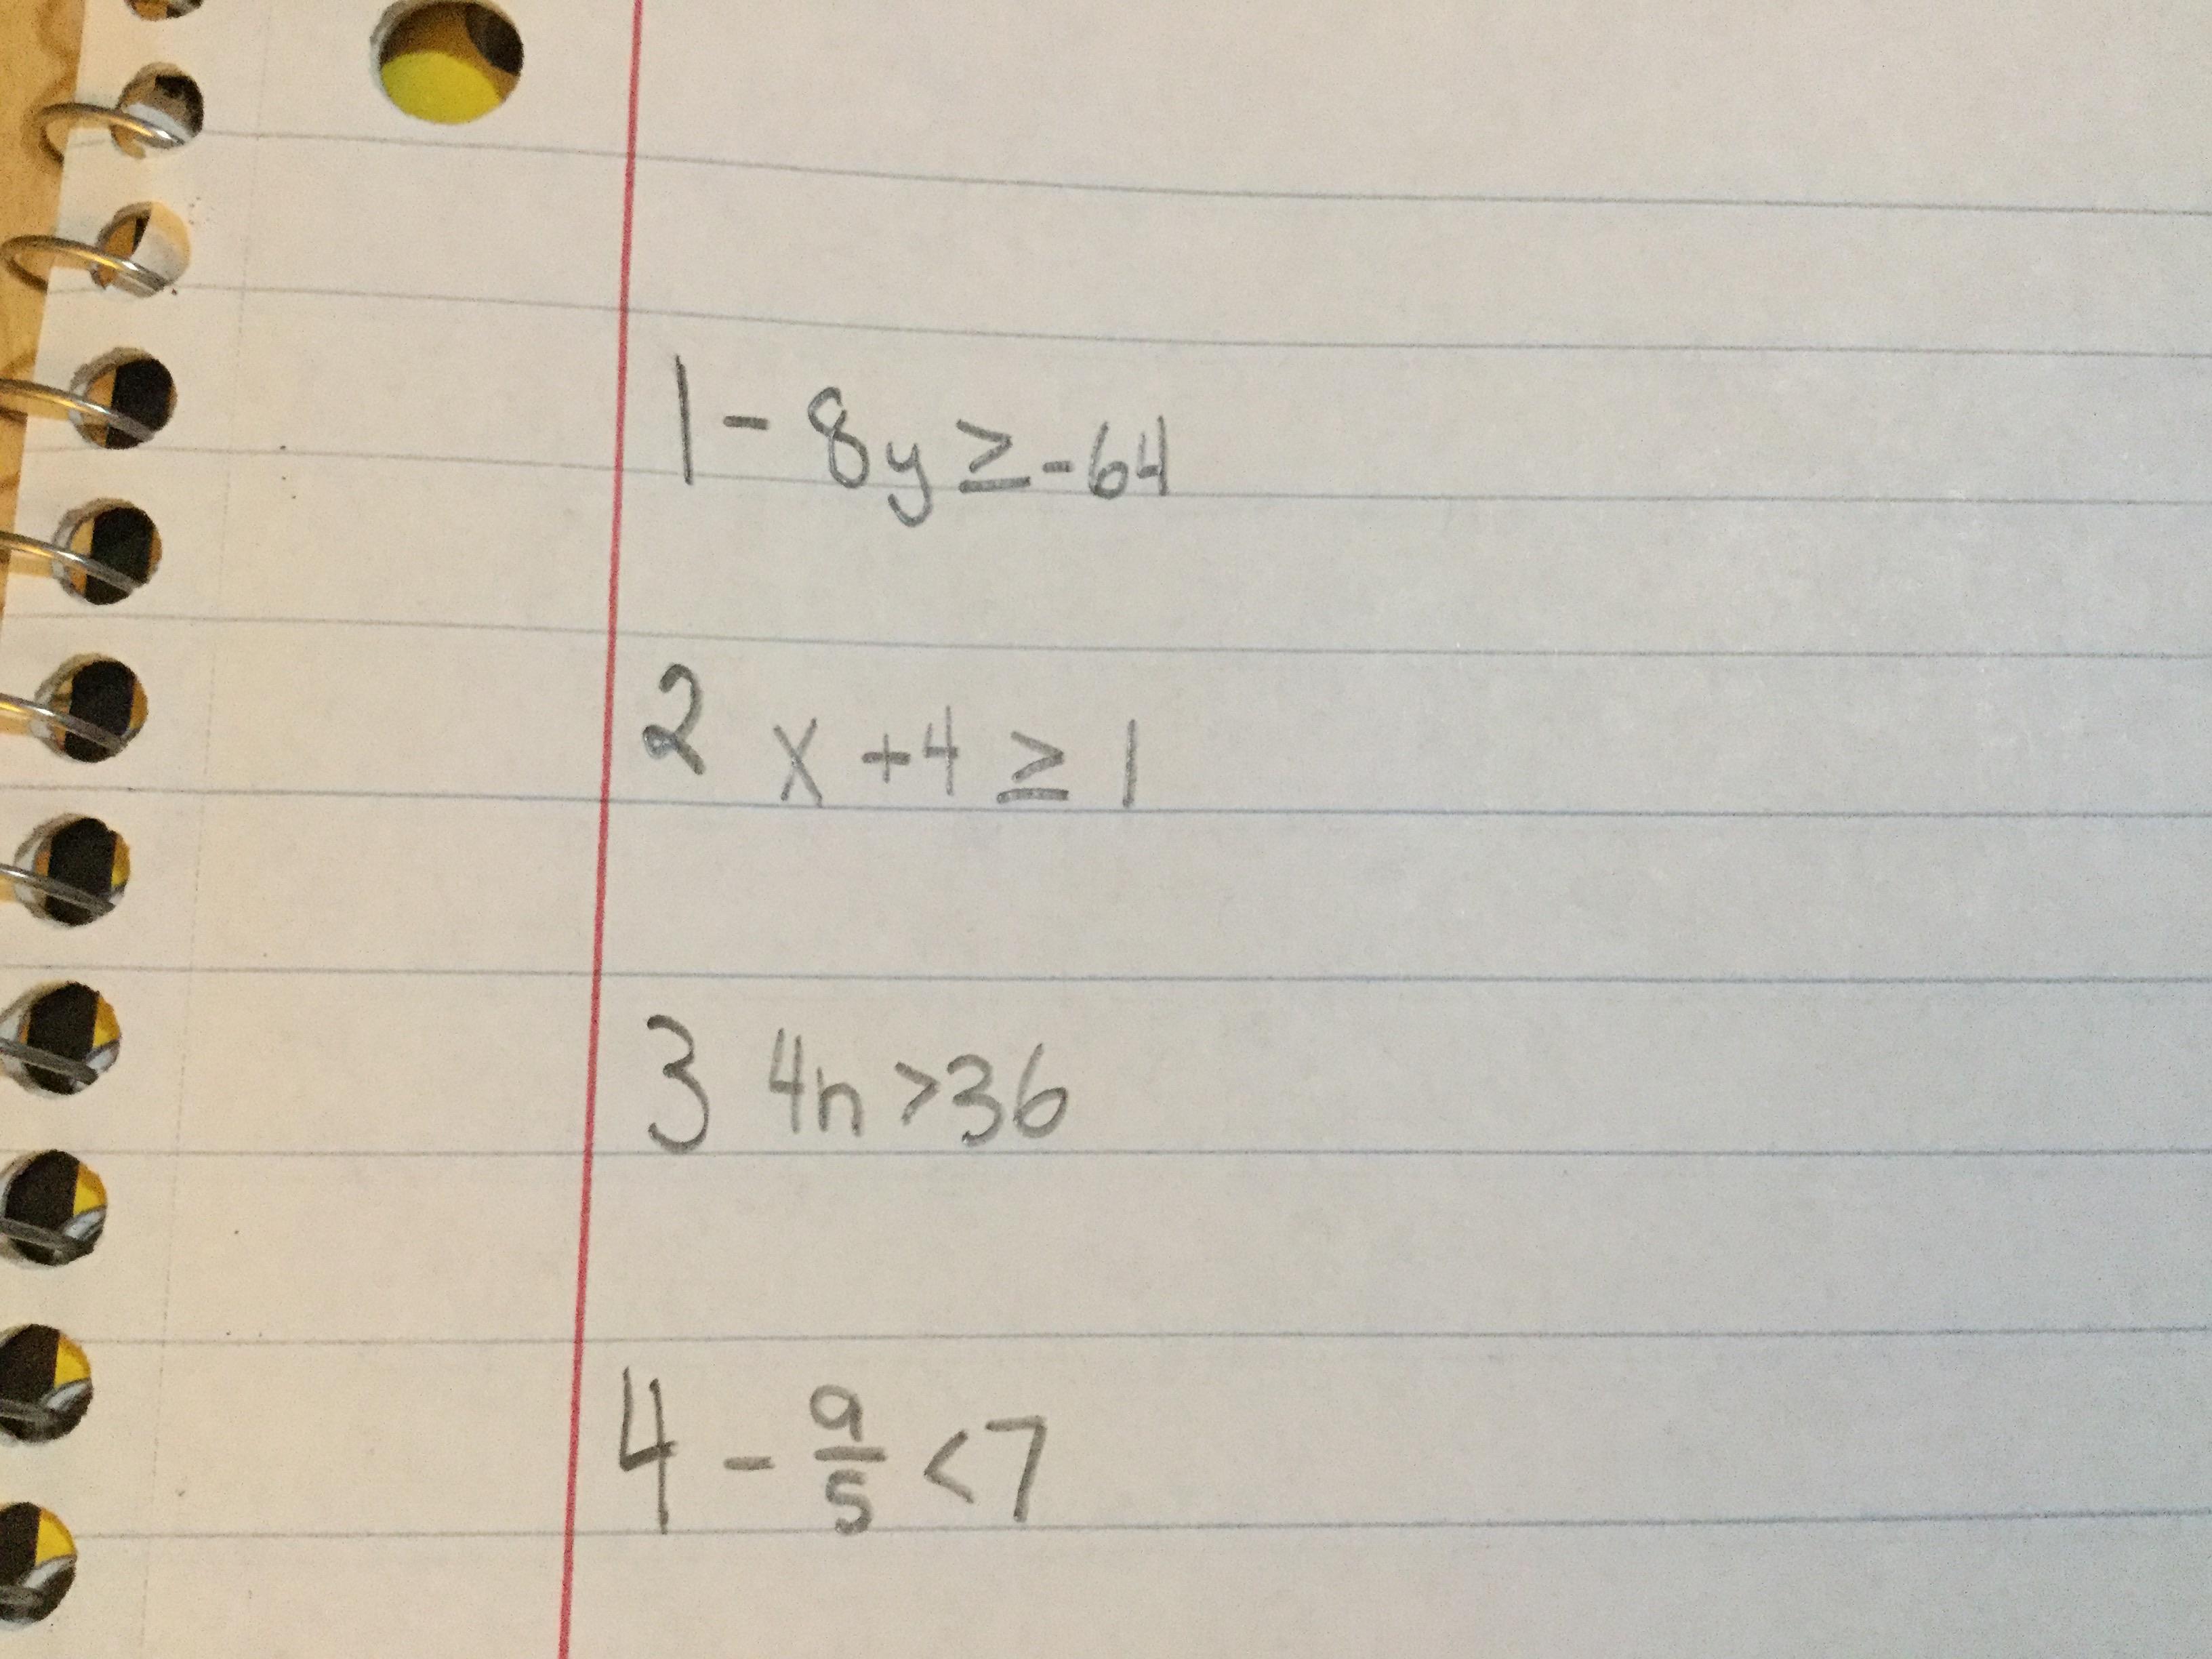 1 - 8y ≥ -64
2 x + 4 ≥ 1
3 4n > 36
4 - a/5 < 7